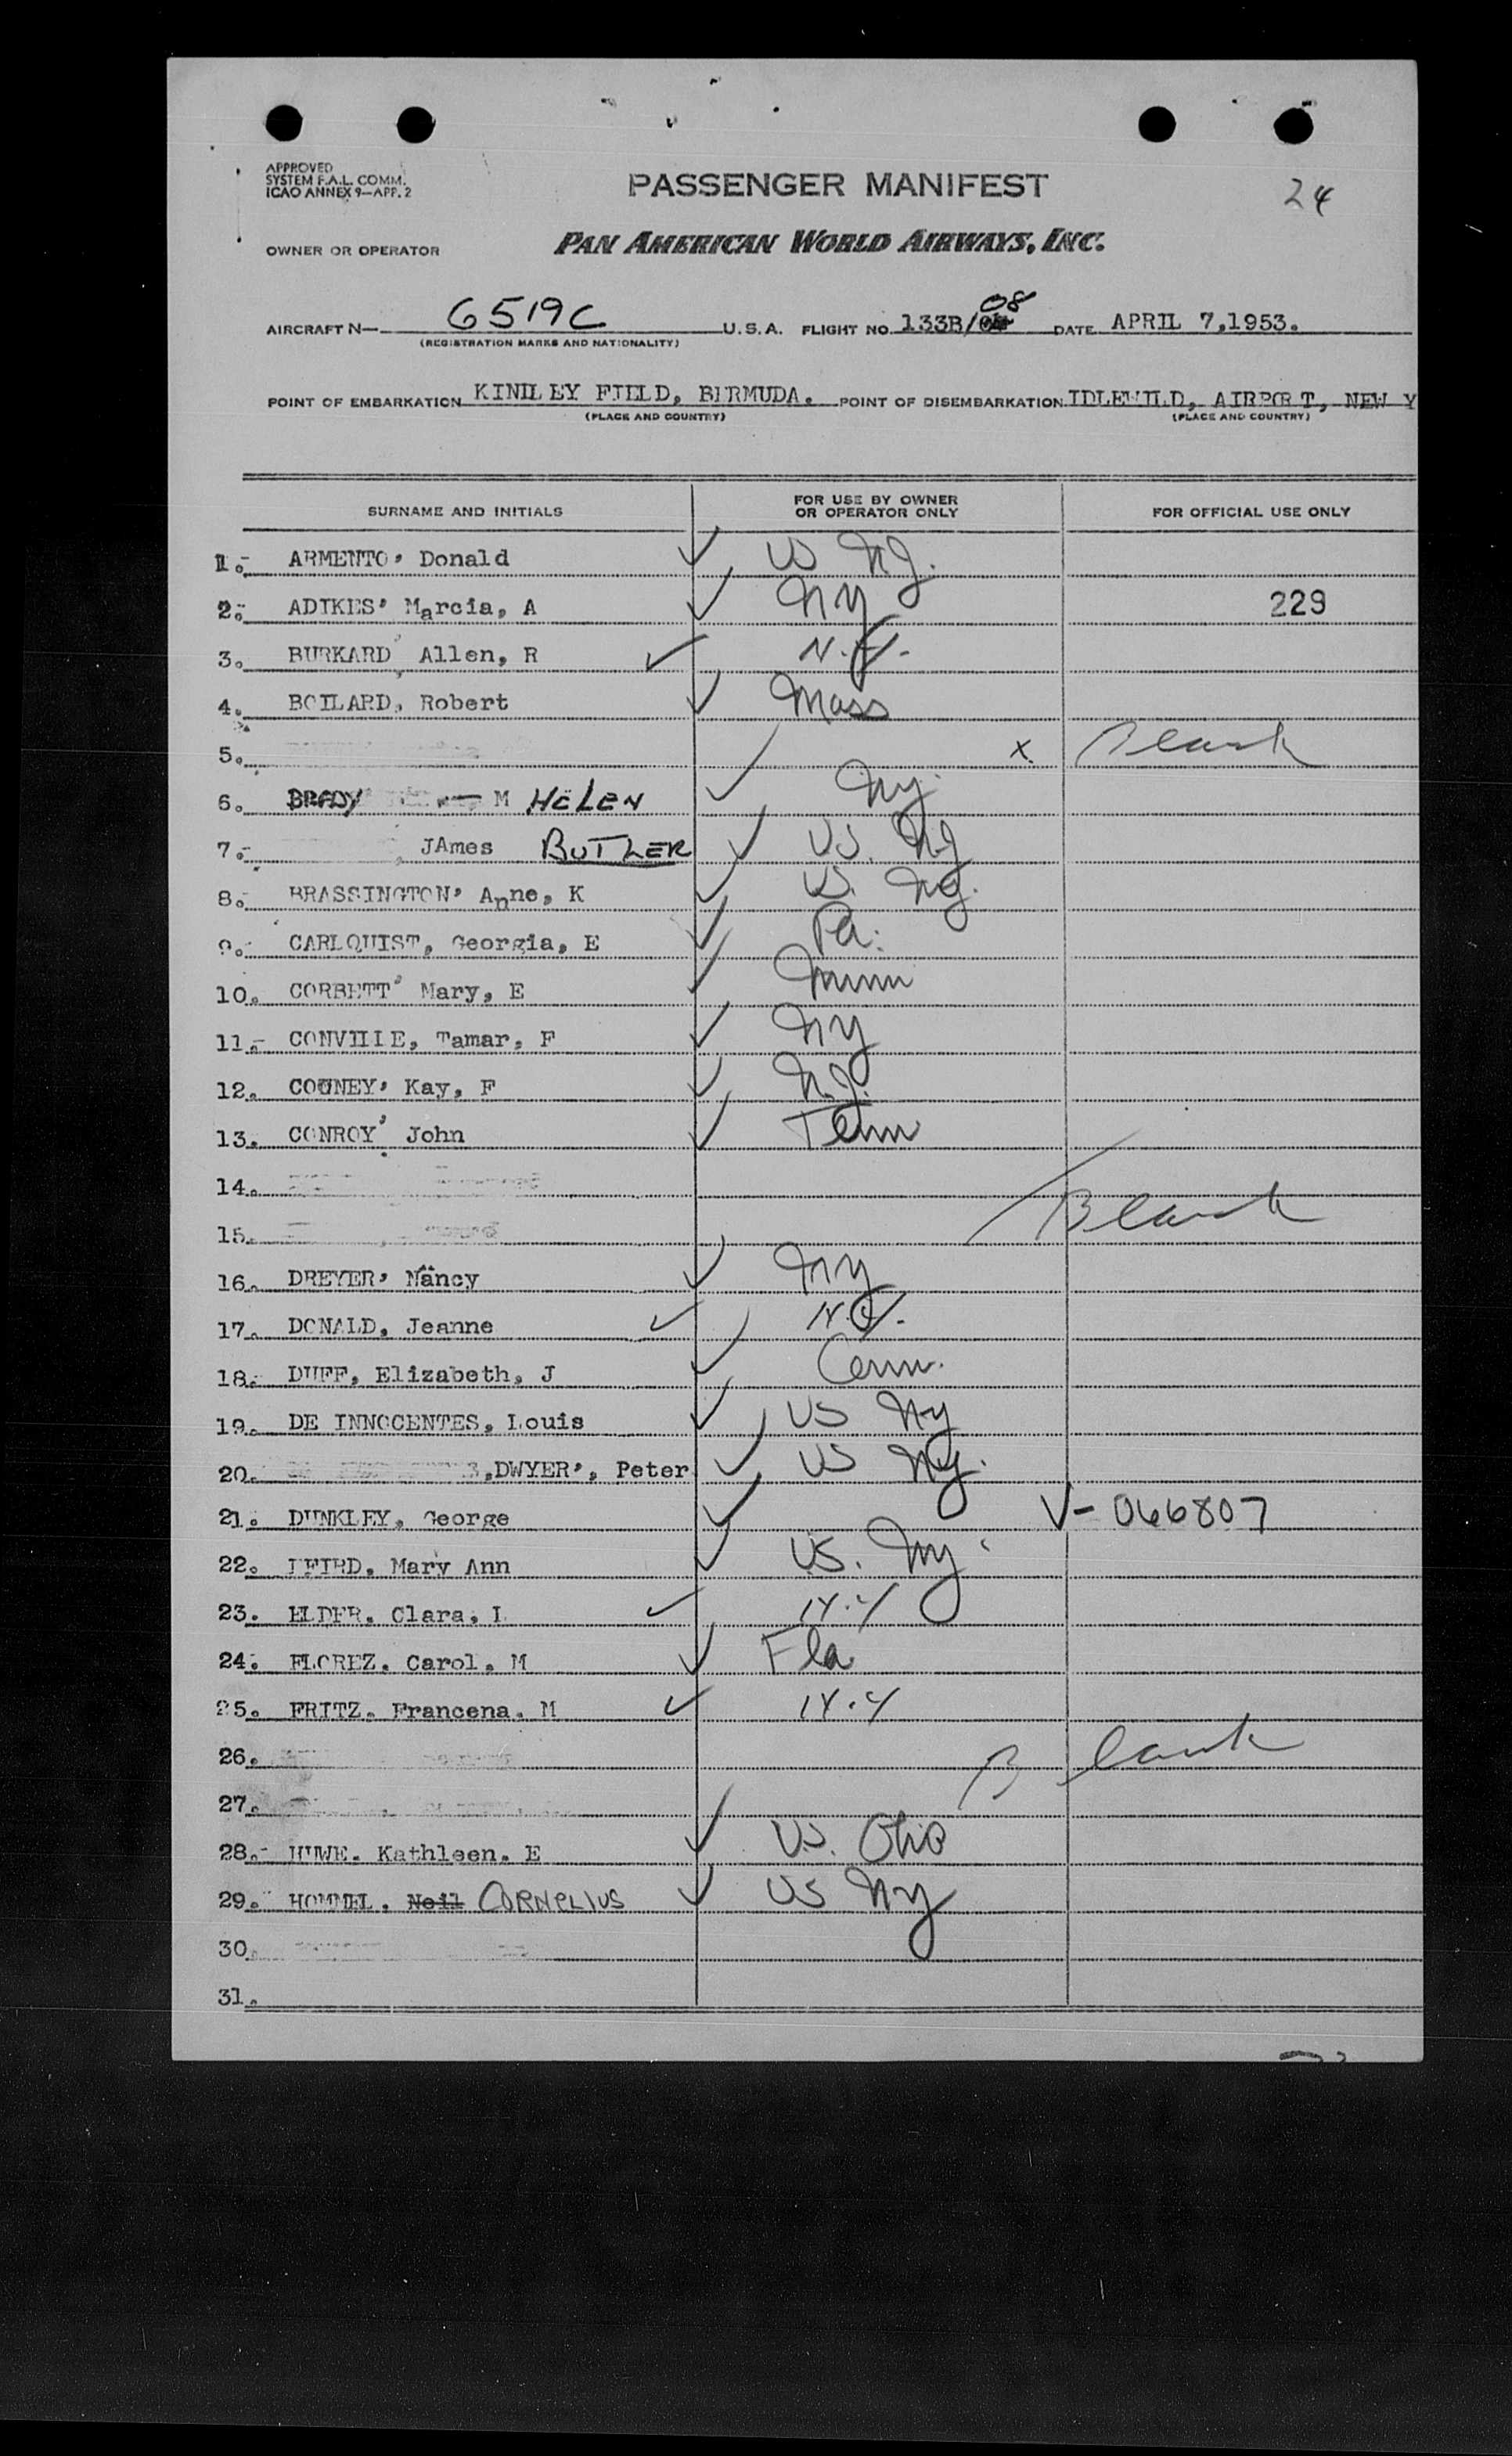 APPROVED
SYSTEM F.A.L. COMM.
ICAO ANNEX 9—APP. 2
PASSENGER MANIFEST
24
OWNER OR OPERATOR PAN AMERICAN WORLD AIRWAYS, INC.
AIRCRAFT N— 6519C U.S.A. FLIGHT NO. 133B/08 DATE APRIL 7,1953.
(REGISTRATION MARKS AND NATIONALITY)
POINT OF EMBARKATION KINDLEY FIELD, BERMUDA. POINT OF DISEMBARKATION IDLEWILD, AIRPORT, NEW Y
(PLACE AND COUNTRY) (PLACE AND COUNTRY)
SURNAME AND INITIALS FOR USE BY OWNER OR OPERATOR ONLY FOR OFFICIAL USE ONLY
1. ARMENTO, Donald ✓ US NJ.
2. ADIKES, Marcia, A ✓ NY 229
3. BURKARD, Allen, R ✓ N.Y.
4. BOILARD, Robert ✓ Mass
5. x Blank
6. BRADY M HELEN ✓ NY
7. JAmes BUTLER ✓ US. NJ
8. BRASSINGTON, Anne, K ✓ US. NJ.
9. CARLQUIST, Georgia, E ✓ Pa.
10. CORBETT, Mary, E ✓ Minn
11. CONVILLE, Tamar, F ✓ NY
12. COONEY, Kay, F ✓ N.J.
13. CONROY, John ✓ Tenn
14.
15. Blank
16. DREYER, Nancy ✓ NY
17. DONALD, Jeanne ✓ N.Y.
18. DUFF, Elizabeth, J ✓ Conn.
19. DE INNOCENTES, Louis ✓ US NY
20. DWYER, Peter ✓ US NY.
21. DUNKLEY, George ✓ V-066807
22. Mary Ann ✓ US. NY
23. ELDER, Clara, L ✓ N.Y
24. FLOREZ, Carol, M ✓ Fla
25. FRITZ, Francena, M ✓ N.Y
26. Blank
27.
28. HUWE, Kathleen, E ✓ US. Ohio
29. HOMMEL, Neil CORNELIUS ✓ US NY
30.
31.